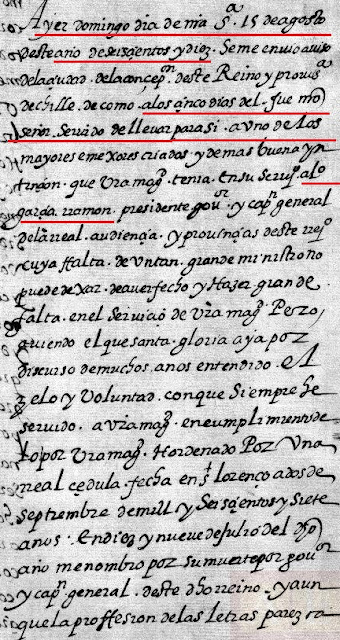 Ayer domingo dia de nra Sª. 15 de agosto
deste año de seiscientos y diez. Se me envio aviso
de la ciudad. de la concepon. deste Reino y provinsª
de chille. de como. a los cinco dias del. fue nro
señor. Servido de llevar para si. a uno de Los
mayores e mexores criados. y de mas buena yn
tinçon. que Vra magd. tenia. En su servisº. alº
garcia. rramon. presidente gouor. y capn general
de la real. audiençia. y provinçias deste reiº
cuya ffalta. de Un tan. grande ministro no
puede dexar. de aver fecho y Hazer grande
falta. en el Serviçio de Vra magd. Pero,
siguiendo el que santa. gloria aya por
discurso de muchos. anos entendido. el
zelo y Voluntad. con que Siempre he
servido. a Vra magd. en cumplimiento de
Lo por Vra magd. Hordenado Por Una
real cedula. fecha en st Lorenço a dos de
septiembre de mill y Seisçientos y Siete
anos. En diez y nueve de Julio del dho
año me nombro por su muerte por gouor
y capn. general. deste dho reino. y aun
que la proffesion de las letras parez ca